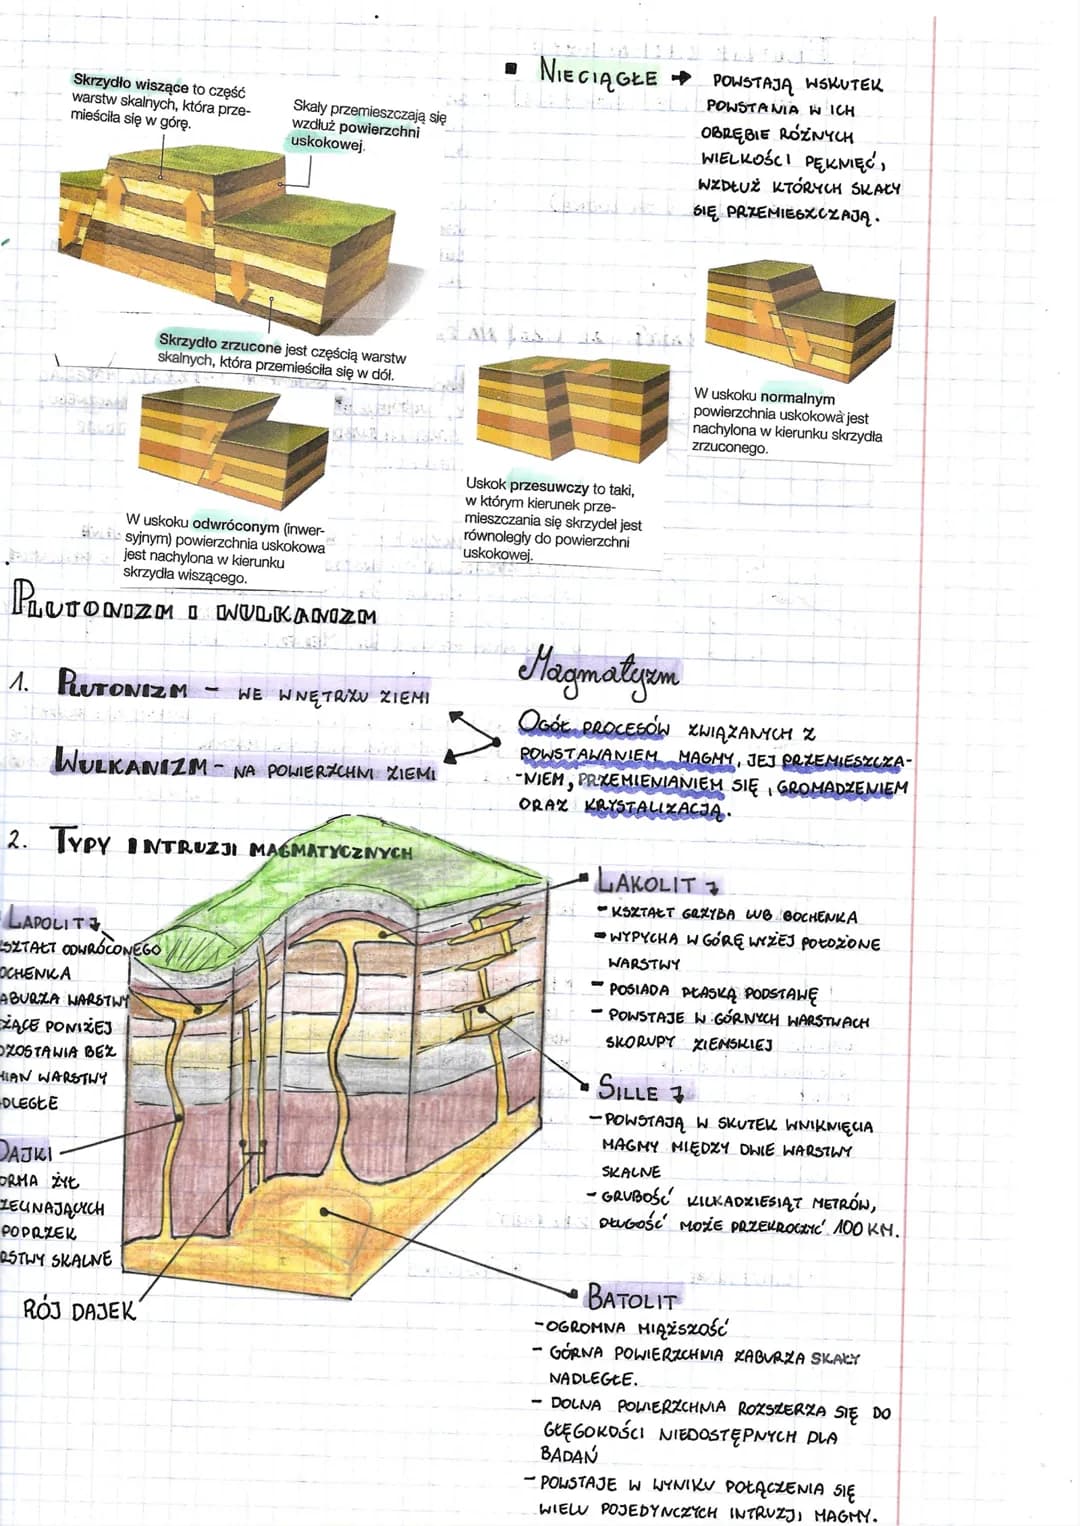 Skrzydło wiszące to część
warstw skalnych, która prze-
mieściła się w górę.
Skały przemieszczają się
wzdłuż powierzchni
uskokowej.
Skrzydło zrzucone jest częścią warstw
skalnych, która przemieściła się w dół.
▪ NIECIĄGŁE → POWSTAJĄ WSKUTEK
POWSTANIA W ICH
OBRĘBIE RÓŻNYCH
WIELKOŚCI PĘKNIĘĆ,
WZDŁUŻ KTÓRYCH SKAŁY
SIĘ PRZEMIESZCZAJĄ.
W uskoku normalnym
powierzchnia uskokowa jest
nachylona w kierunku skrzydła
zrzuconego.
Uskok przesuwczy to taki,
w którym kierunek prze-
mieszczania się skrzydeł jest
równoległy do powierzchni
uskokowej.
W uskoku odwróconym (inwer-
syjnym) powierzchnia uskokowa
jest nachylona w kierunku
skrzydła wiszącego.
PLUTONIZM I WULKANIZM
1. PLUTONIZM - WE WNĘTRZU ZIEMI
WULKANIZM - NA POWIERZCHNI ZIEMI
Magmatyzm
OGÓŁ PROCESÓW ZWIĄZANYCH Z
POWSTAWANIEM MAGMY, JEJ PRZEMIESZCZA-
-NIEM, PRZEMIENIANIEM SIĘ, GROMADZENIEM
ORAZ KRYSTALIZACJĄ.
2. TYPY INTRUZJI MAGMATYCZNYCH
LAPOLIT
SZTAŁT ODWRÓCONEGO
OCHENKA
ABURZA WARSTWY
ŻĄCE PONIŻEJ
OZOSTAWIA BEZ
MIAN WARSTWY
DLEGŁE
DAJKI
ORMA ŻYŁ
ZECINAJĄCYCH
POPRZEK
RSTWY SKALNE
RÓJ DAJEK
LAKOLIT
- KSZTAŁT GRZYBA LUB BOCHENKA
- WYPYCHA W GÓRĘ WYŻEJ POŁOŻONE
WARSTWY
- POSIADA PŁASKĄ PODSTAWĘ
- POWSTAJE W GÓRNYCH WARSTWACH
SKORUPY ZIEMSKIEJ
SILLE
- POWSTAJĄ W SKUTEK WNIKNIĘCIA
MAGMY MIĘDZY DWIE WARSTWY
SKALNE
- GRUBOŚĆ KILKADZIESIĄT METRÓW,
DŁUGOŚĆ MOŻE PRZEKROCZYĆ 100 KM.
BATOLIT
- OGROMNA MIĄŻSZOŚĆ
- GÓRNA POWIERZCHNIA ZABURZA SKAŁY
NADLEGŁE.
- DOLNA POWIERZCHNIA ROZSZERZA SIĘ DO
GŁĘGOKOŚCI NIEDOSTĘPNYCH DLA
BADAŃ
- POWSTAJE W WYNIKU POŁĄCZENIA SIĘ
WIELU POJEDYNCZYCH INTRUZJI MAGMY.